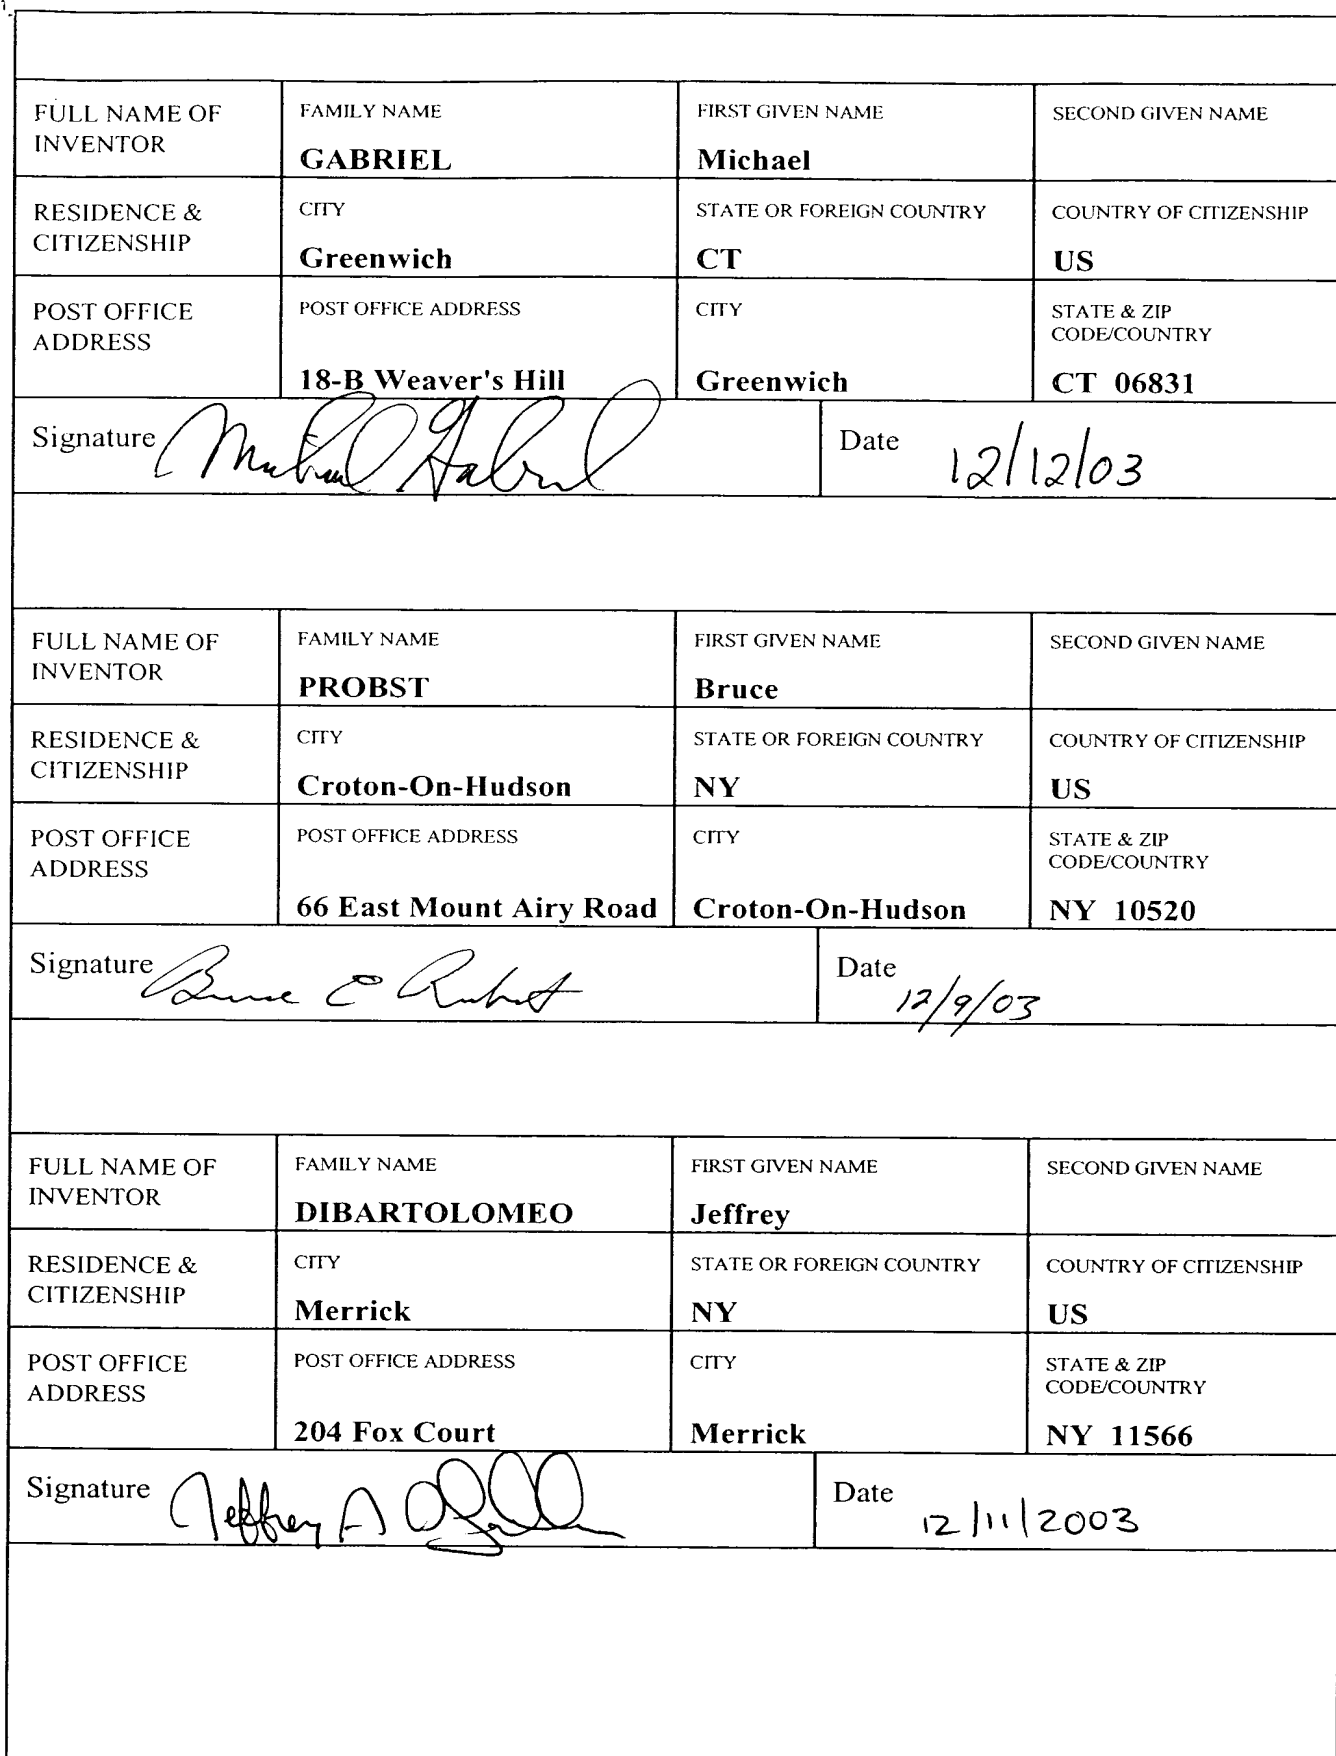 FULL NAME OF INVENTOR
FAMILY NAME
GABRIEL
FIRST GIVEN NAME
Michael
SECOND GIVEN NAME
RESIDENCE & CITIZENSHIP
CITY
Greenwich
STATE OR FOREIGN COUNTRY
CT
COUNTRY OF CITIZENSHIP
US
POST OFFICE ADDRESS
POST OFFICE ADDRESS
18-B Weaver's Hill
CITY
Greenwich
STATE & ZIP CODE/COUNTRY
CT 06831
Signature Michael Gabriel
Date 12/12/03
FULL NAME OF INVENTOR
FAMILY NAME
PROBST
FIRST GIVEN NAME
Bruce
SECOND GIVEN NAME
RESIDENCE & CITIZENSHIP
CITY
Croton-On-Hudson
STATE OR FOREIGN COUNTRY
NY
COUNTRY OF CITIZENSHIP
US
POST OFFICE ADDRESS
POST OFFICE ADDRESS
66 East Mount Airy Road
CITY
Croton-On-Hudson
STATE & ZIP CODE/COUNTRY
NY 10520
Signature Bruce E Probst
Date 12/9/03
FULL NAME OF INVENTOR
FAMILY NAME
DIBARTOLOMEO
FIRST GIVEN NAME
Jeffrey
SECOND GIVEN NAME
RESIDENCE & CITIZENSHIP
CITY
Merrick
STATE OR FOREIGN COUNTRY
NY
COUNTRY OF CITIZENSHIP
US
POST OFFICE ADDRESS
POST OFFICE ADDRESS
204 Fox Court
CITY
Merrick
STATE & ZIP CODE/COUNTRY
NY 11566
Signature Jeffrey A
Date 12/11/2003